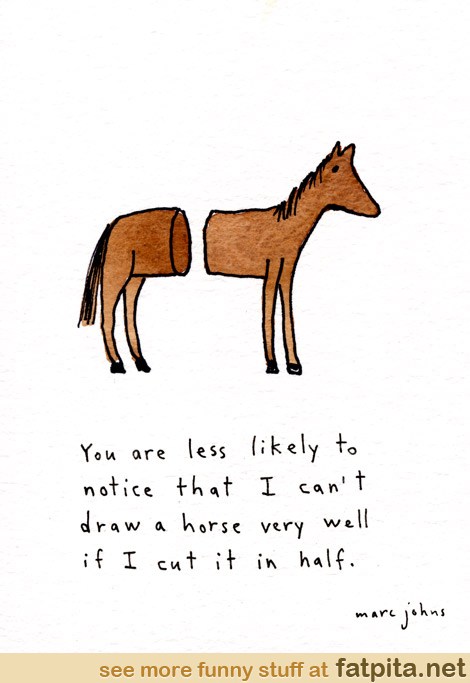 You are less likely to
notice that I can't
draw a horse very well
if I cut it in half.
marc johns
see more funny stuff at fatpita.net